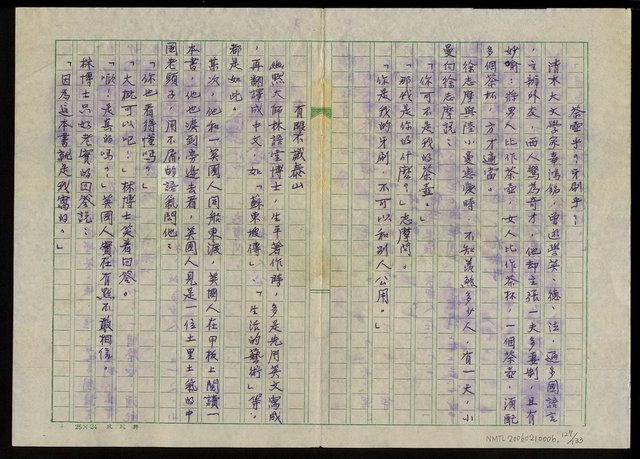 茶壺乎？牙刷乎？
清末大文學家辜鴻銘，曾遊學英、德、法，通多國語言
，主辦外交，西人驚為奇才，他卻主張一夫多妻制，且有
妙喻：將男人比作茶壺，女人比作茶杯，一個茶壺，須配
多個茶杯，方才適當。
徐志摩與陸小曼戀愛時，不知羨煞多少人，有一天，小
曼向徐志摩說：
「你可不是我的茶壺。」
「那我是你的什麼？」志摩問。
「你是我的牙刷，不可以和別人公用。」
有眼不識泰山
幽默大師林語堂博士，生平著作時，多是先用英文寫成
，再翻譯成中文，如「蘇東坡傳」、「生活的藝術」等，
都是如此。
某次，他和一英國人同船東渡，英國人在甲板上閱讀一
本書，他也湊到旁邊去看，英國人見是一位土里土氣的中
國老頭子，用不屑的語氣問他：
「你也看得懂嗎？」
「大概可以吧！」林博士笑着回答。
「哦！是真的嗎？」英國人實在有點不敢相信。
林博士只好老實的回答說：
「因為這本書就是我寫的。」
25×24
NMTL20060210006, 127/133